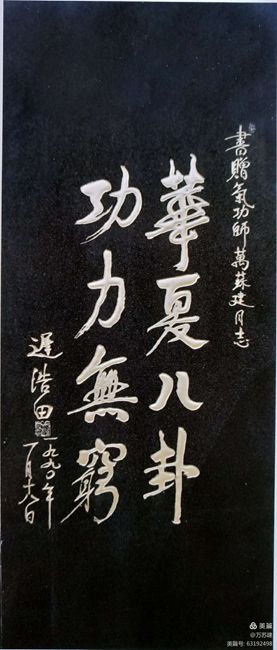 書贈氣功師萬蘇建同志
華夏八卦
功力無窮
遲浩田
一九九〇年
一月十六日
美篇
@万苏建
美篇号: 63192498